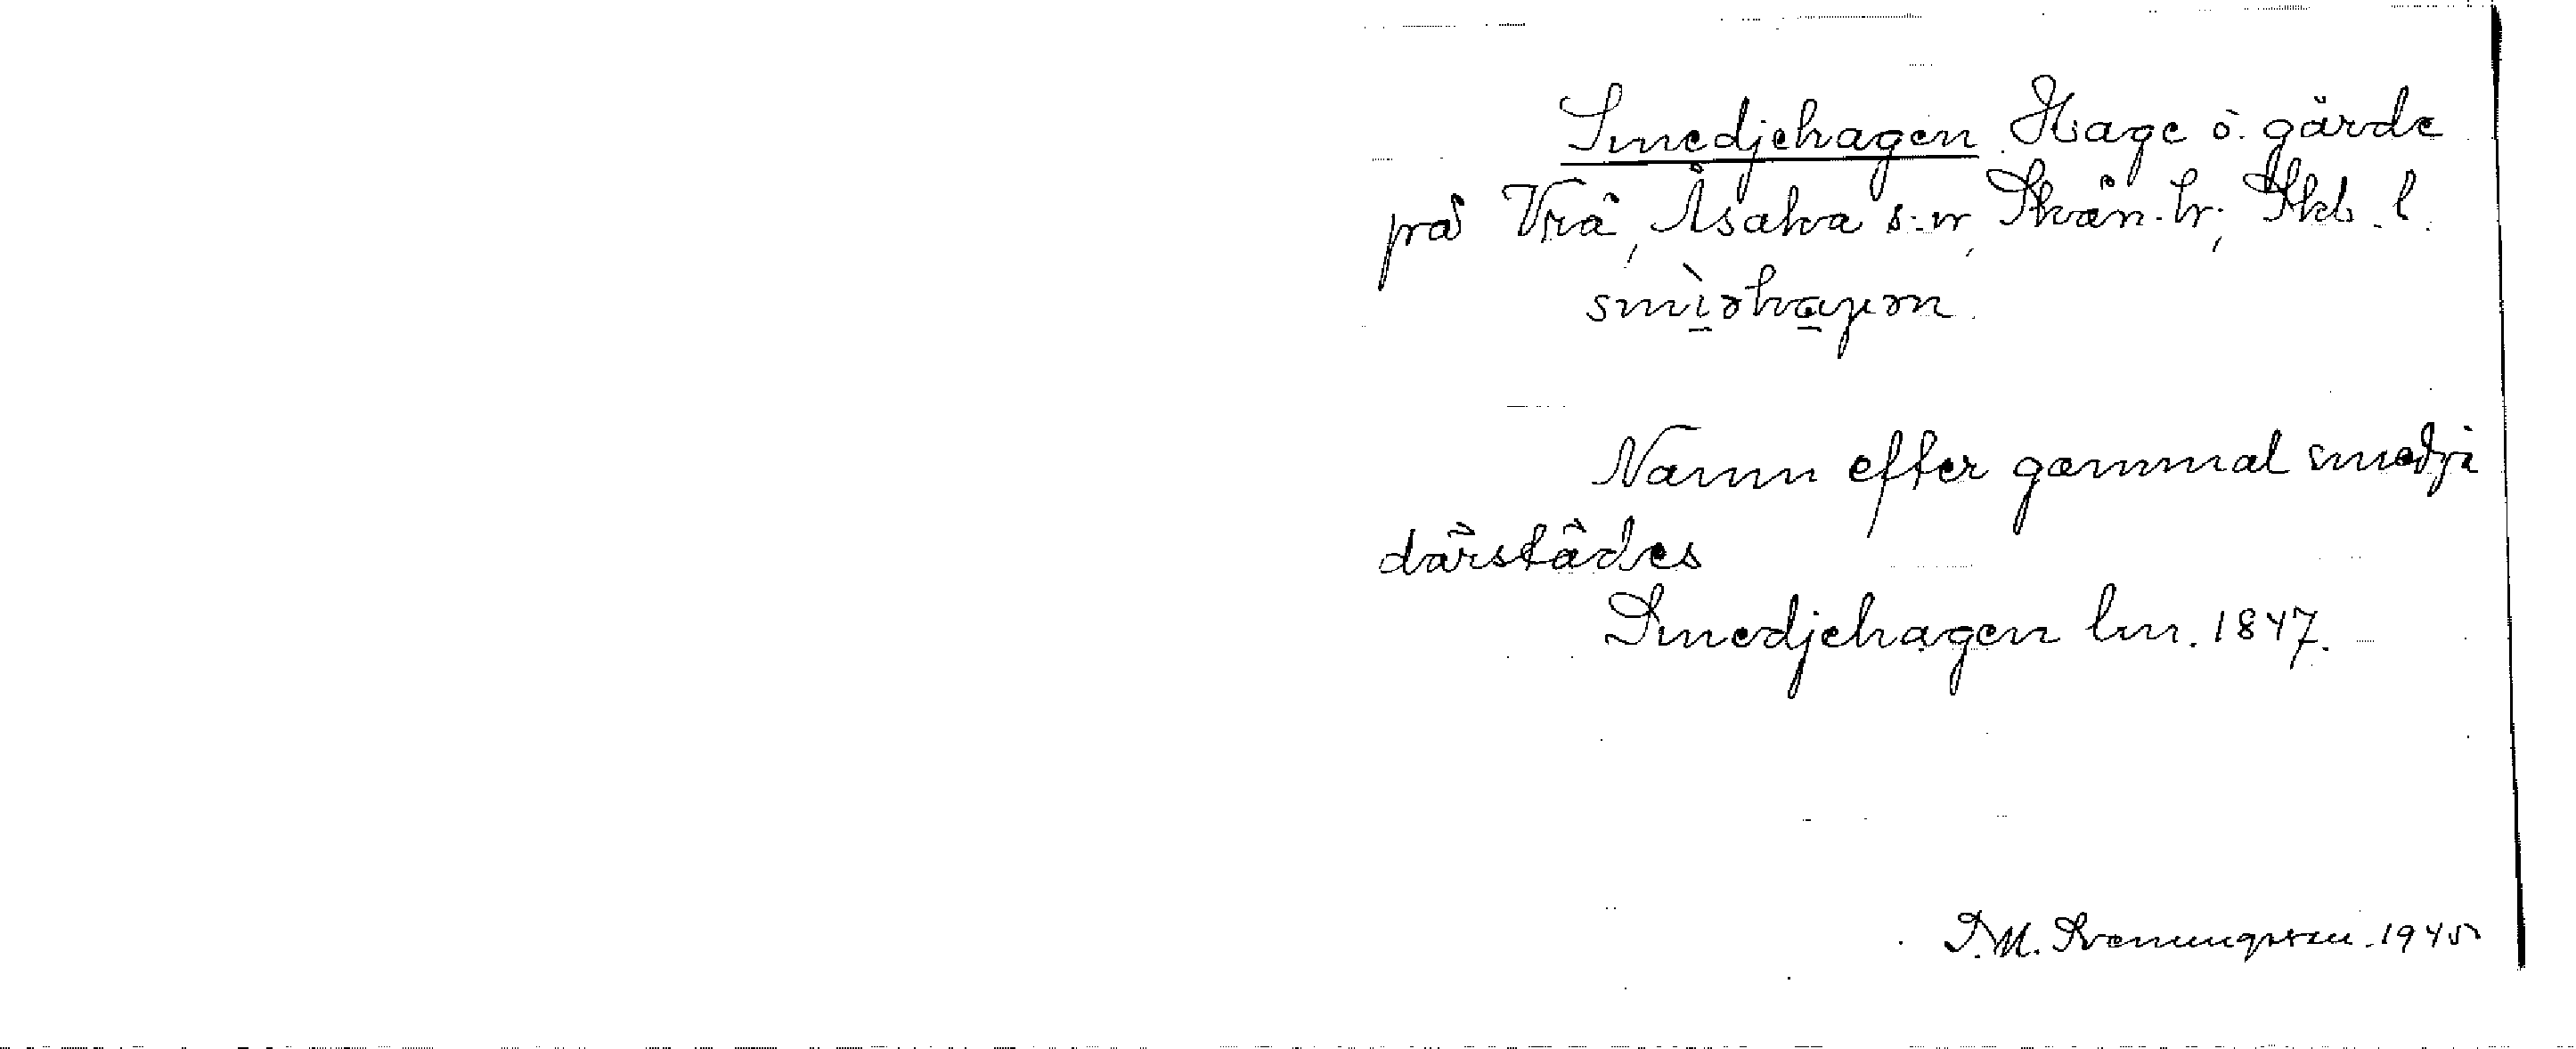 Smedjehagen. Hage o. gärde
på Vrå, Åsaka s:n, Skån. hr, Skb. l.
smìəhaɡən.
Namn efter gammal smedja
därstädes
Smedjehagen lm. 1847.
S. M. Svenungsson. 1945